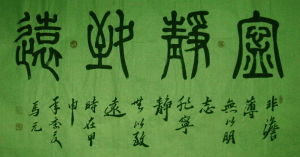 寧靜致遠
非澹
薄
無以明
志
非寧
靜
無以致
遠
時在甲
申
馬元